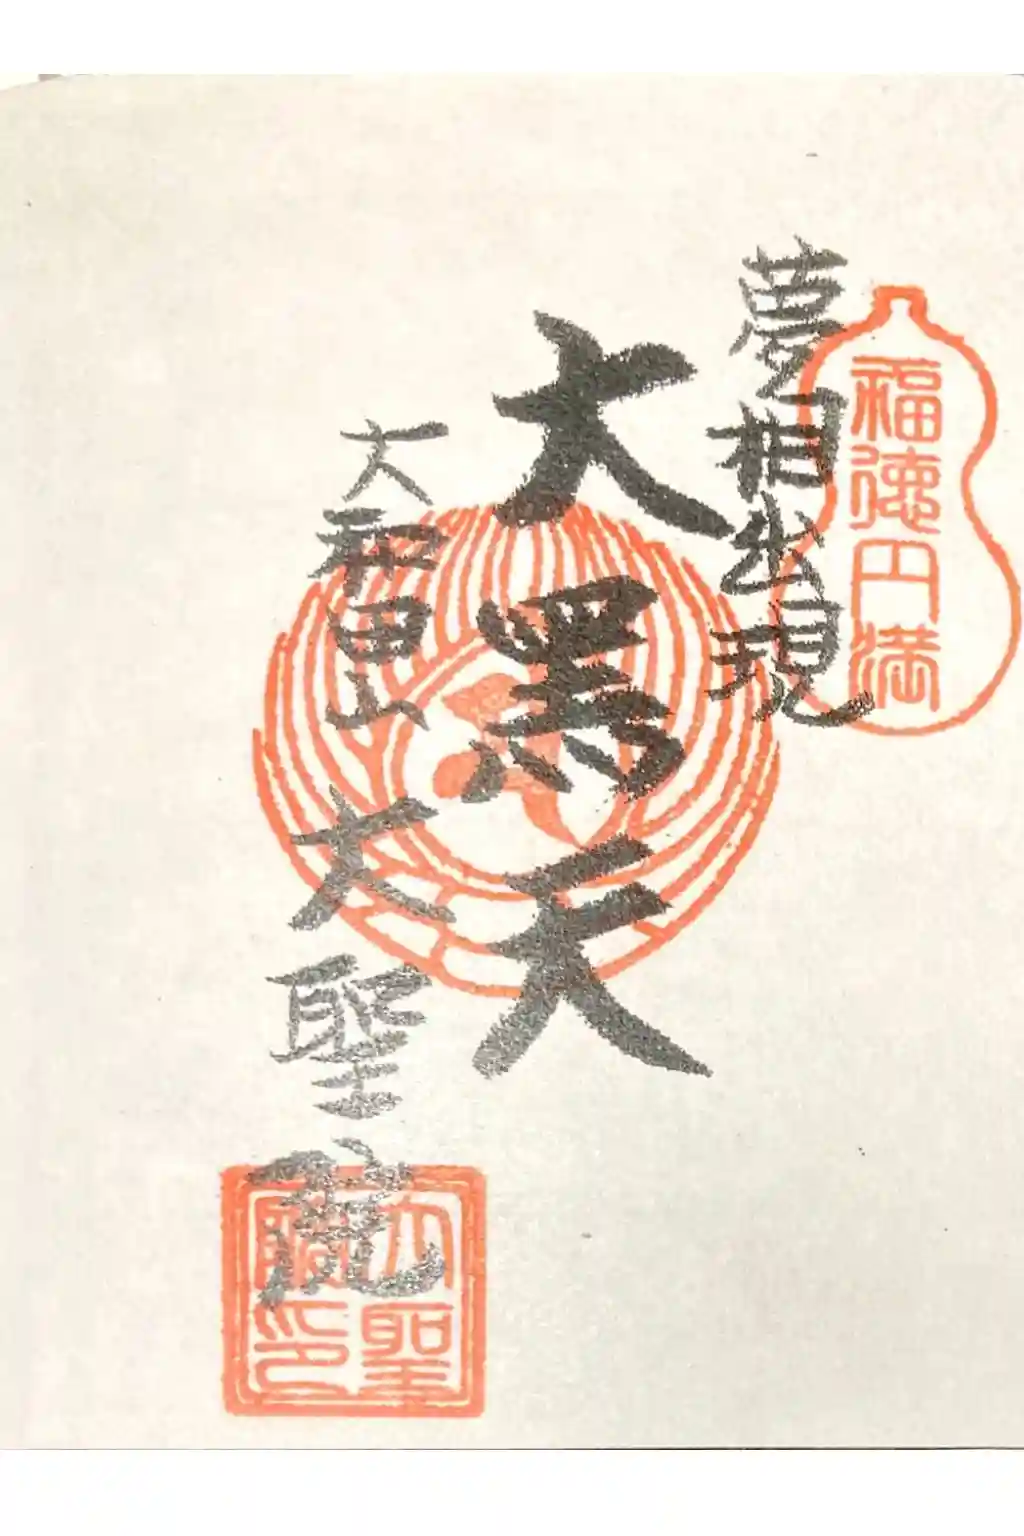 福徳円満
夢相出現
大黒天
大和田山
大聖院
大聖
印